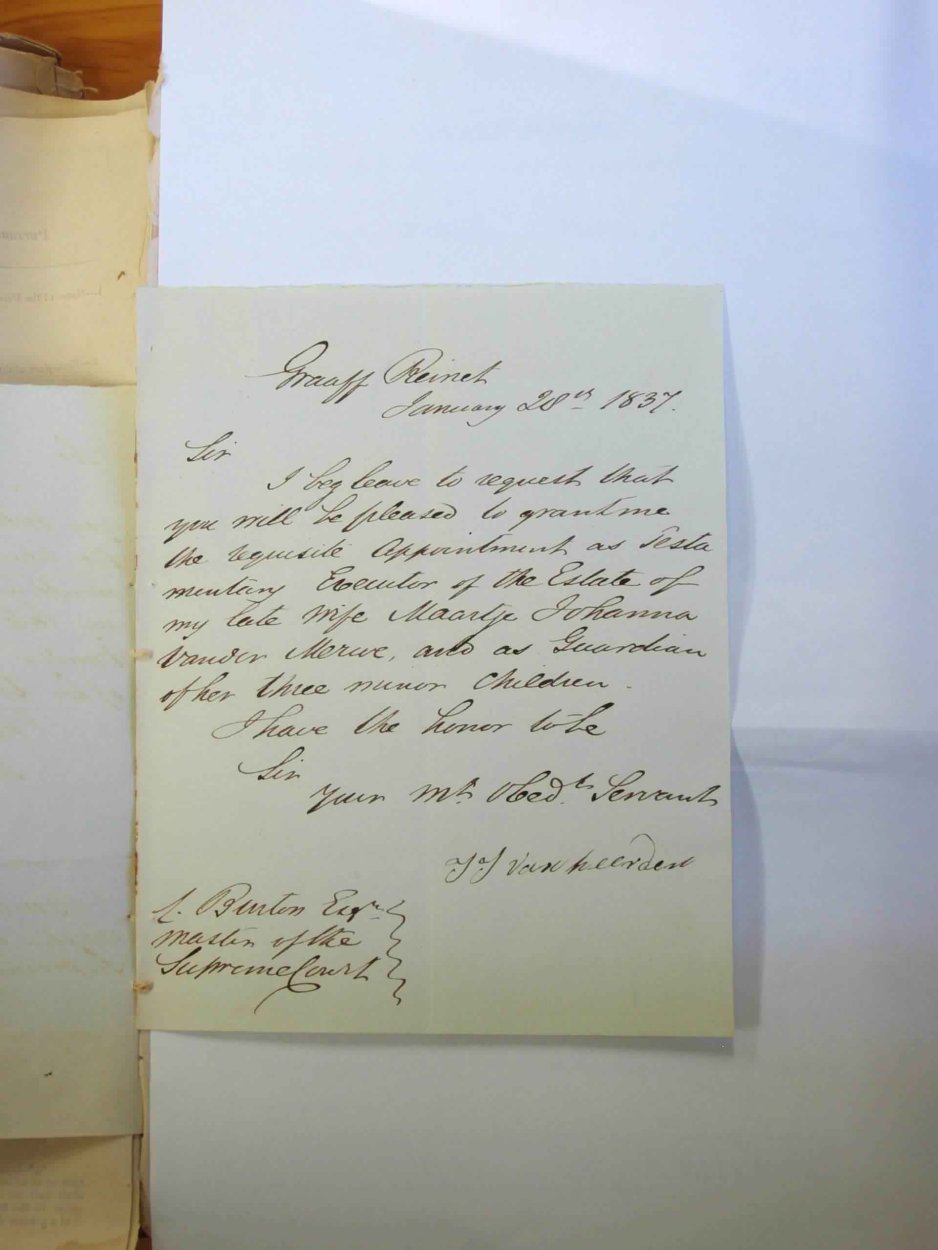 Graaff Reinet
January 28th 1837.
Sir
I beg leave to request that
you will be pleased to grant me
the requisite Appointment as Testa
mentary Executor of the Estate of
my late Wife Maartje Johanna
Vander Merwe, and as Guardian
of her three minor Children.
I have the honor to be
Sir
Your Mt. Obedt. Servant
J J Van heerden
C. Burton Esqre
Master of the
Supreme Court